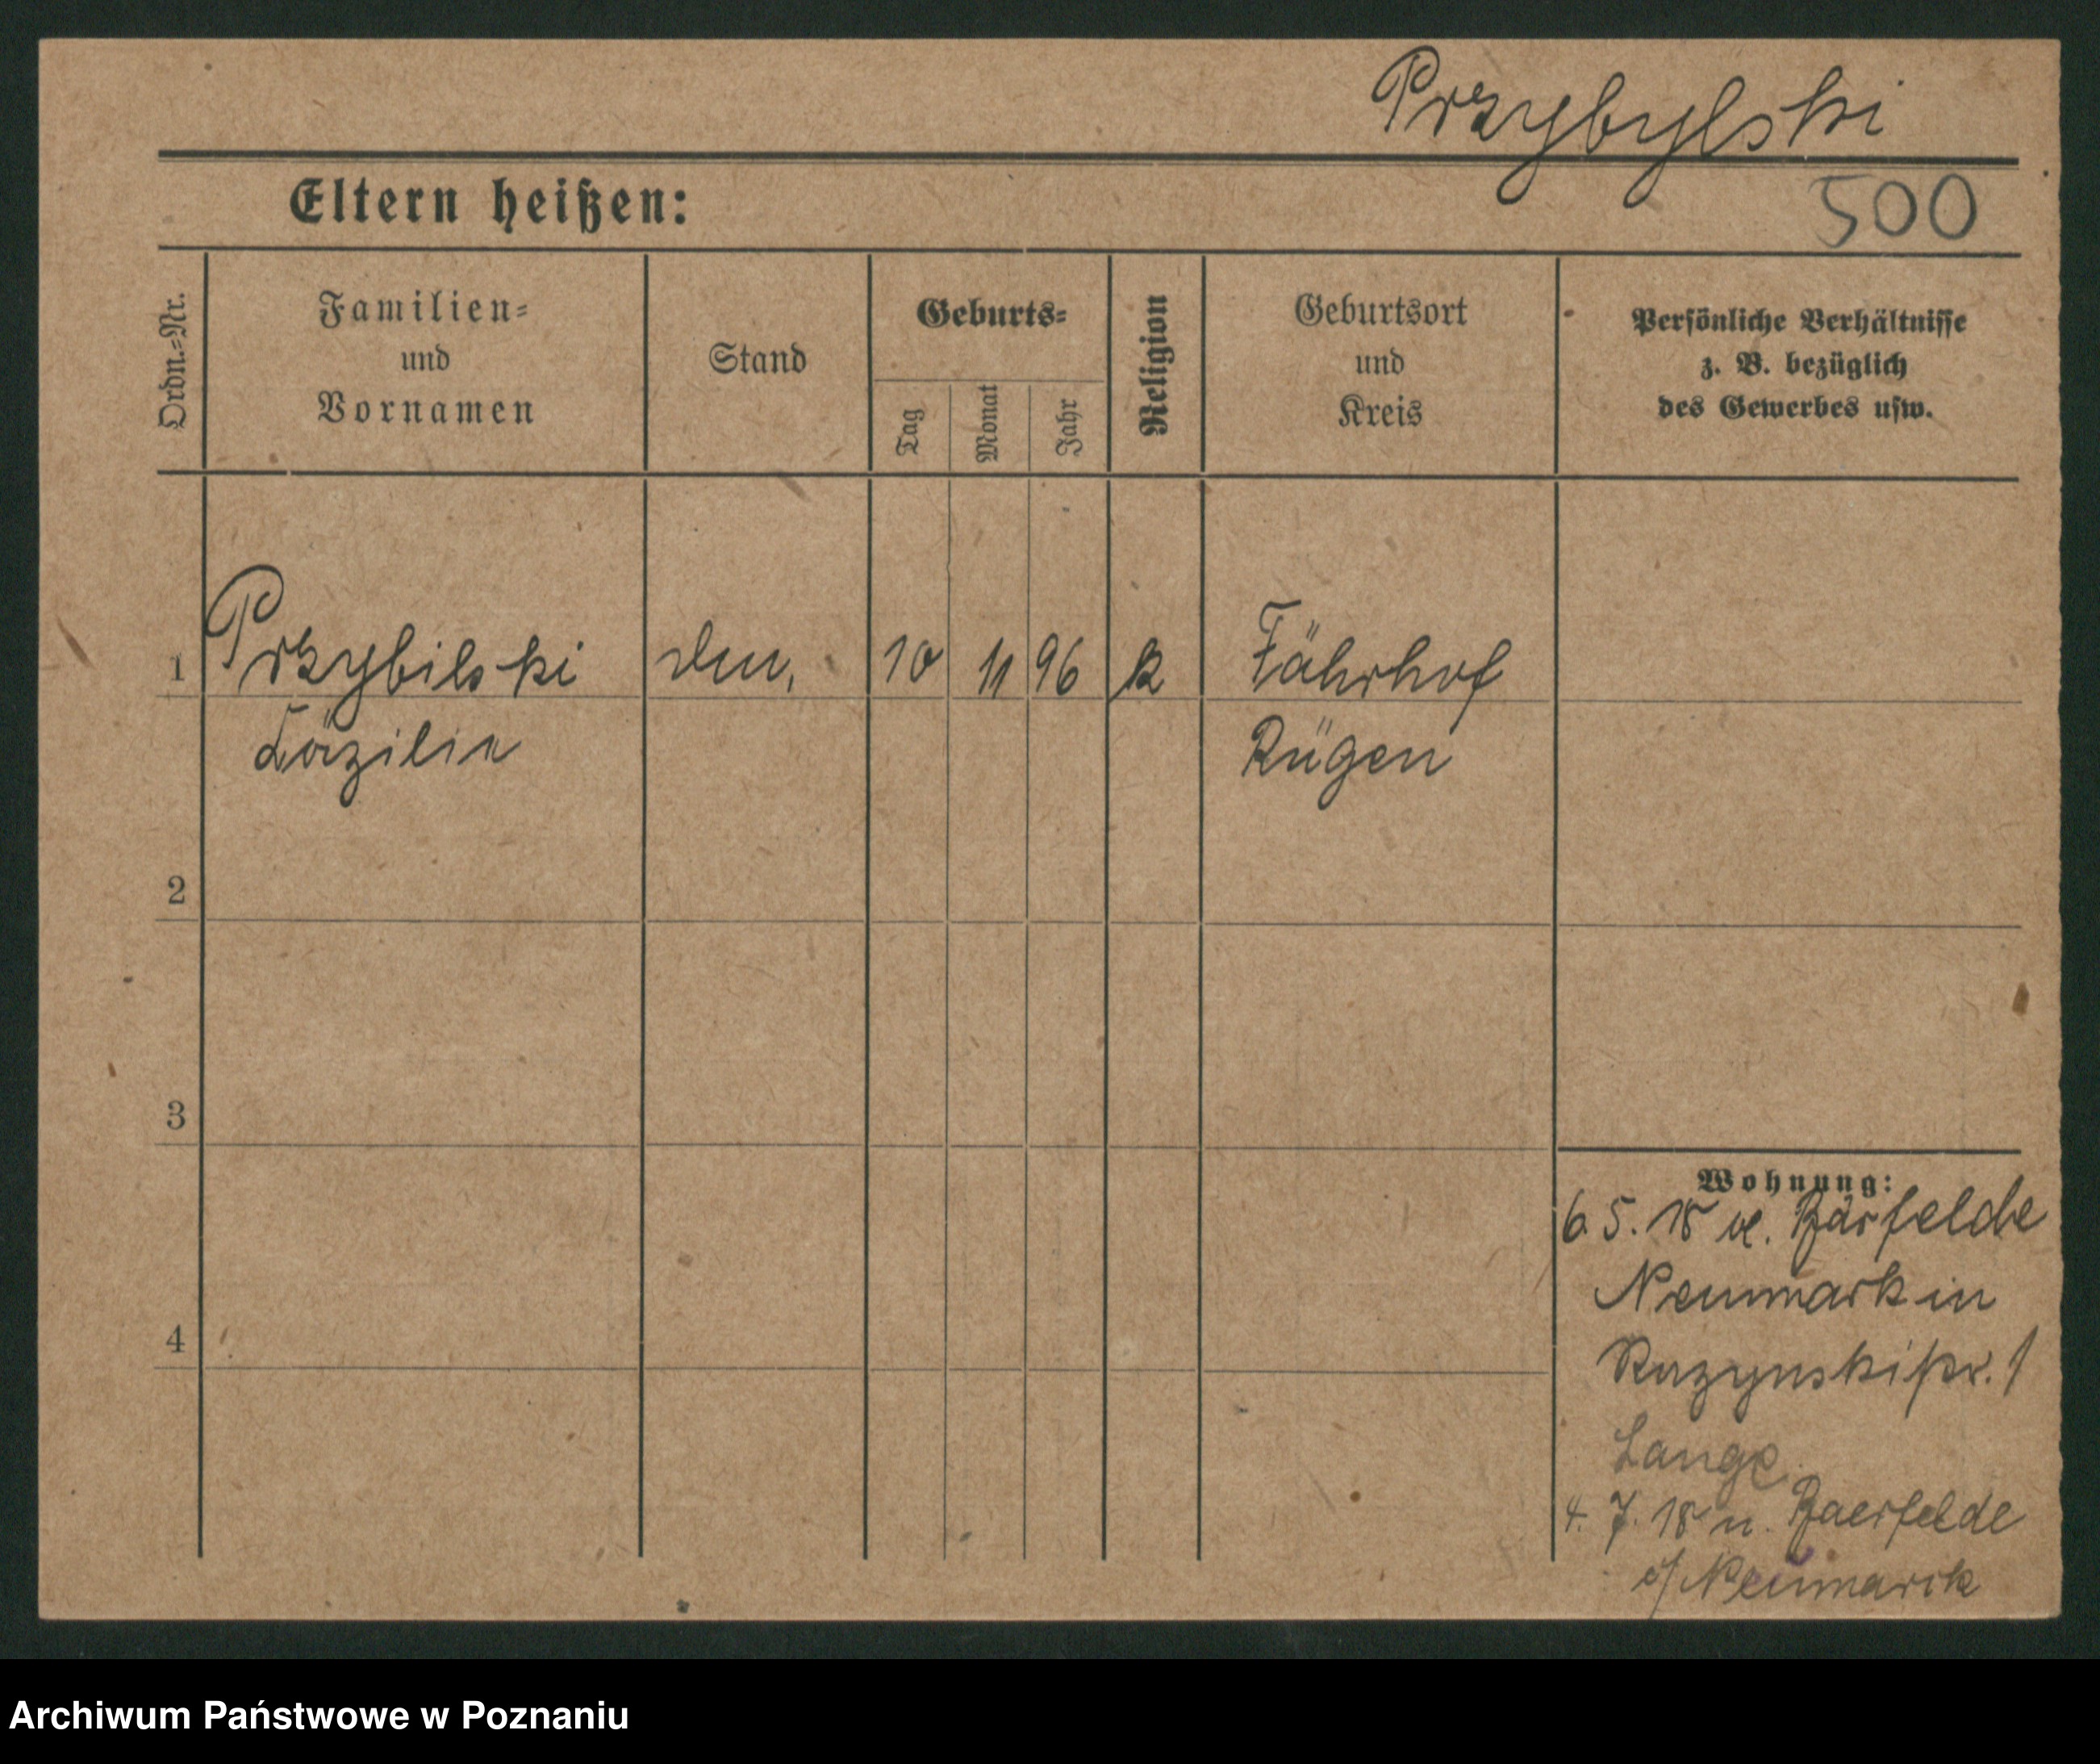 Przybylski
Eltern heißen:
500
Ordn.-Nr.
Familien-
und
Vornamen
Stand
Geburts-
Tag
Monat
Jahr
Religion
Geburtsort
und
Kreis
Persönliche Verhältnisse
z. B. bezüglich
des Gewerbes usw.
1 Przybilski 10 11 96 k Fährhof
Cäzilie Rügen
2
3
4
Wohnung:
6. 5. 18 v. Bärfelde
Neumark in
Lange
4. 7. 18 n. Baerfelde
i/Neumark
Archiwum Państwowe w Poznaniu